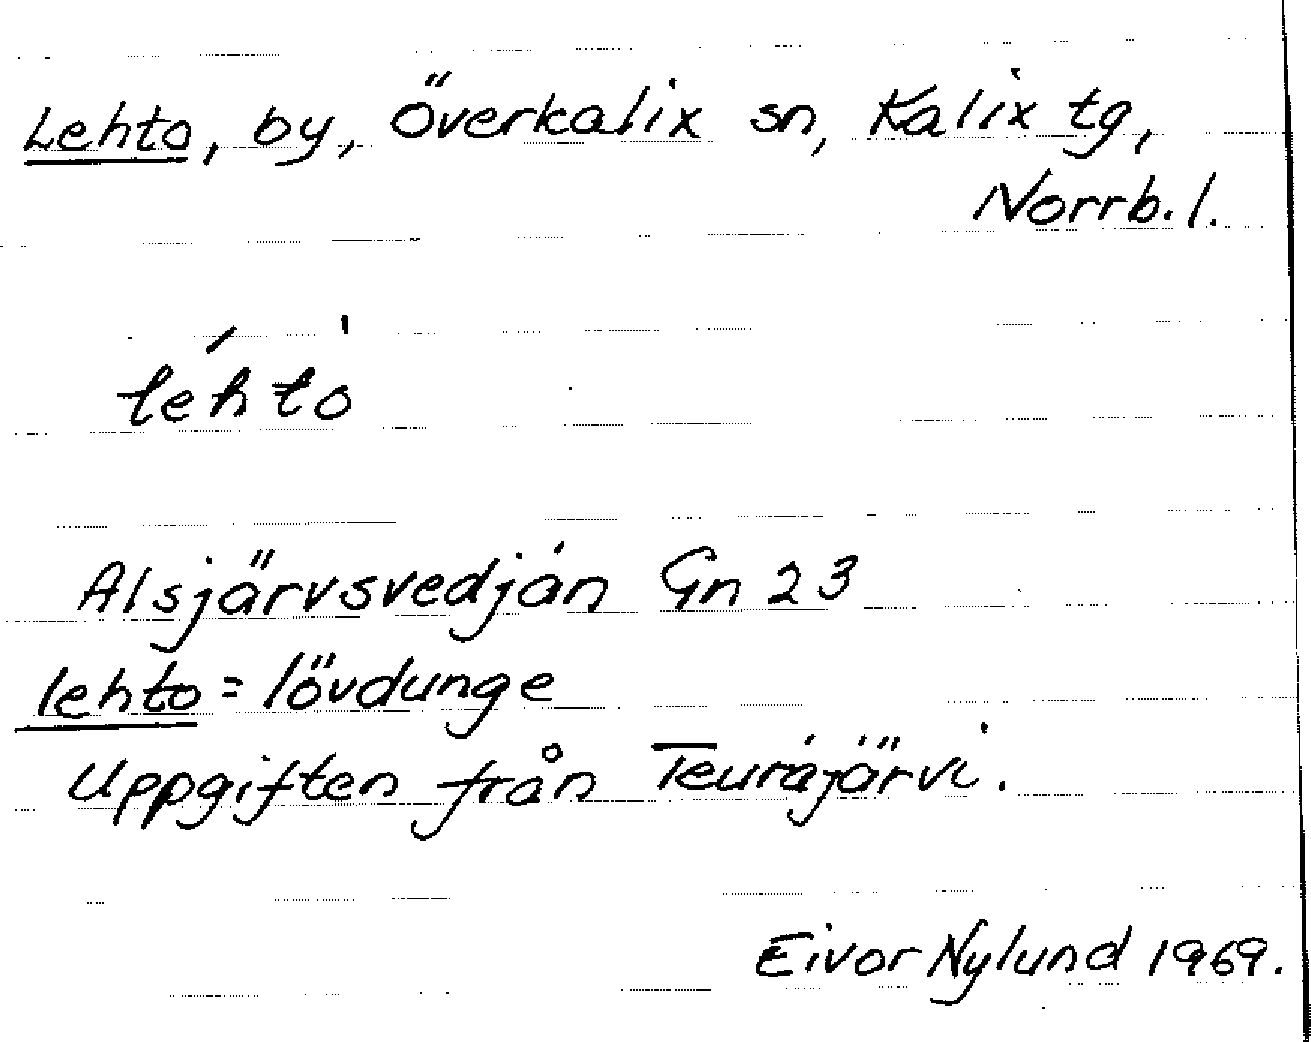 Lehto, by, Överkalix sn, Kalix tg,
Norrb. l.
léhtò
Alsjärvsvedjan Gn 23
lehto = lövdunge
Uppgiften från Teurajärvi.
Eivor Nylund 1969.